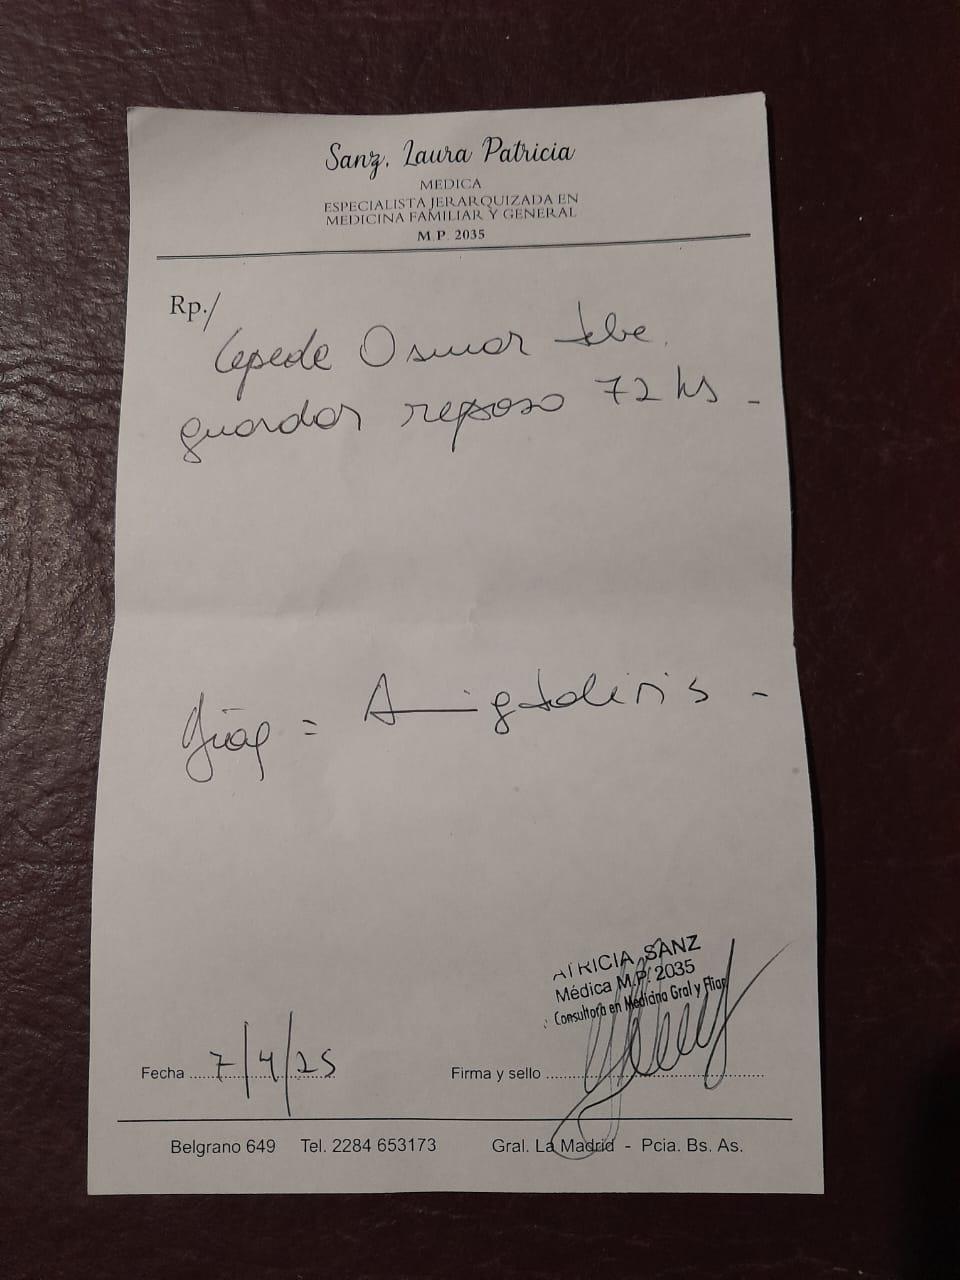 Sanz, Laura Patricia
MEDICA
ESPECIALISTA JERARQUIZADA EN
MEDICINA FAMILIAR Y GENERAL
M.P. 2035
Rp./
Osmar debe
guardar reposo 72 hs -
Diag = Amigdalitis -
ATRICIA SANZ
Médica M.P. 2035
Consultora en Medicina Gral y Fliar
Fecha 7/4/25
Firma y sello
Belgrano 649 Tel. 2284 653173 Gral. La Madrid - Pcia. Bs. As.